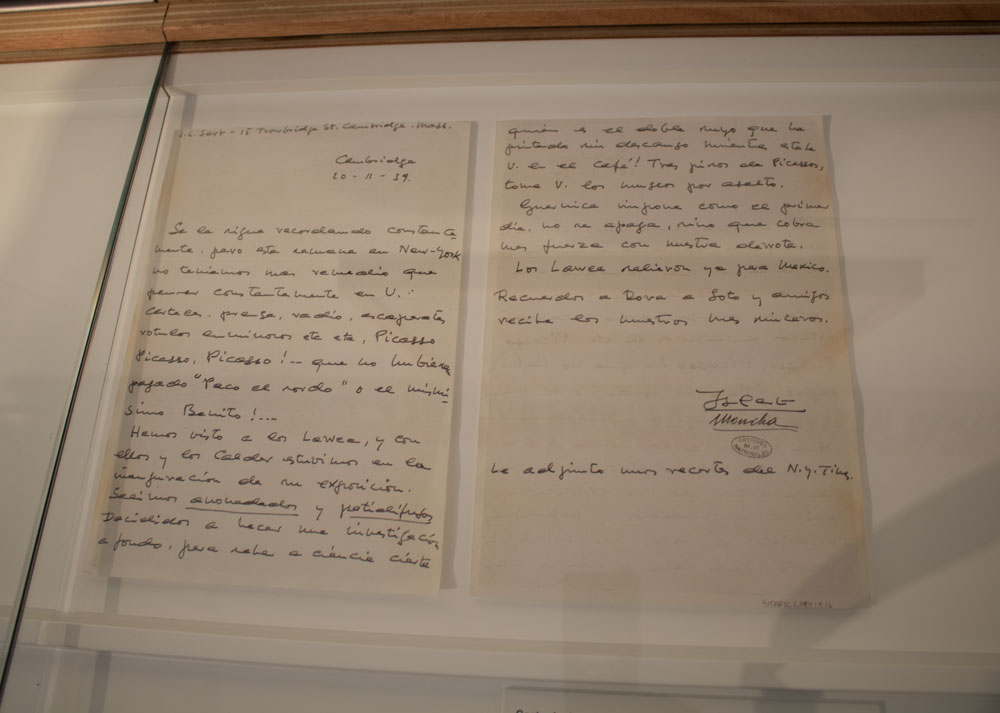 J.L. Sert - 15 Trowbridge St. Cambridge. Mass.
Cambridge
20-11-39.
Se le sigue recordando constante
mente. pero esta semana en New-York
no teniamos mas remedio que
pensar constantemente en U. :
carteles. prensa, radio, escaparates
rotulos luminosos etc etc, Picasso
Picasso, Picasso !-- que no hubiera
pasado "Paco el sordo" o el mismi
simo Benito !...
Hemos visto a los Lawea, y con
ellos y los Calder estuvimos en la
inauguración de su exposición.
Salimos anonadados y patidifusos
Decididos a hacer una investigación
a fondo. para saber a ciencia cierta
quien es el doble suyo que ha
pintado sin descanso mientras estaba
U. en el café! Tres pisos de Picasso,
toma V. los museos por asalto.
Guernica impone como el primer
dia, no se apaga, sino que cobra
mas fuerza con nuestra derrota.
Los Lawea salieron ya para Mexico.
Recuerdos a Dora a Soto y amigos
reciba los nuestros mas sinceros.
JLSert
Moncha
Le adjunto unos recortes del N.Y. Times.